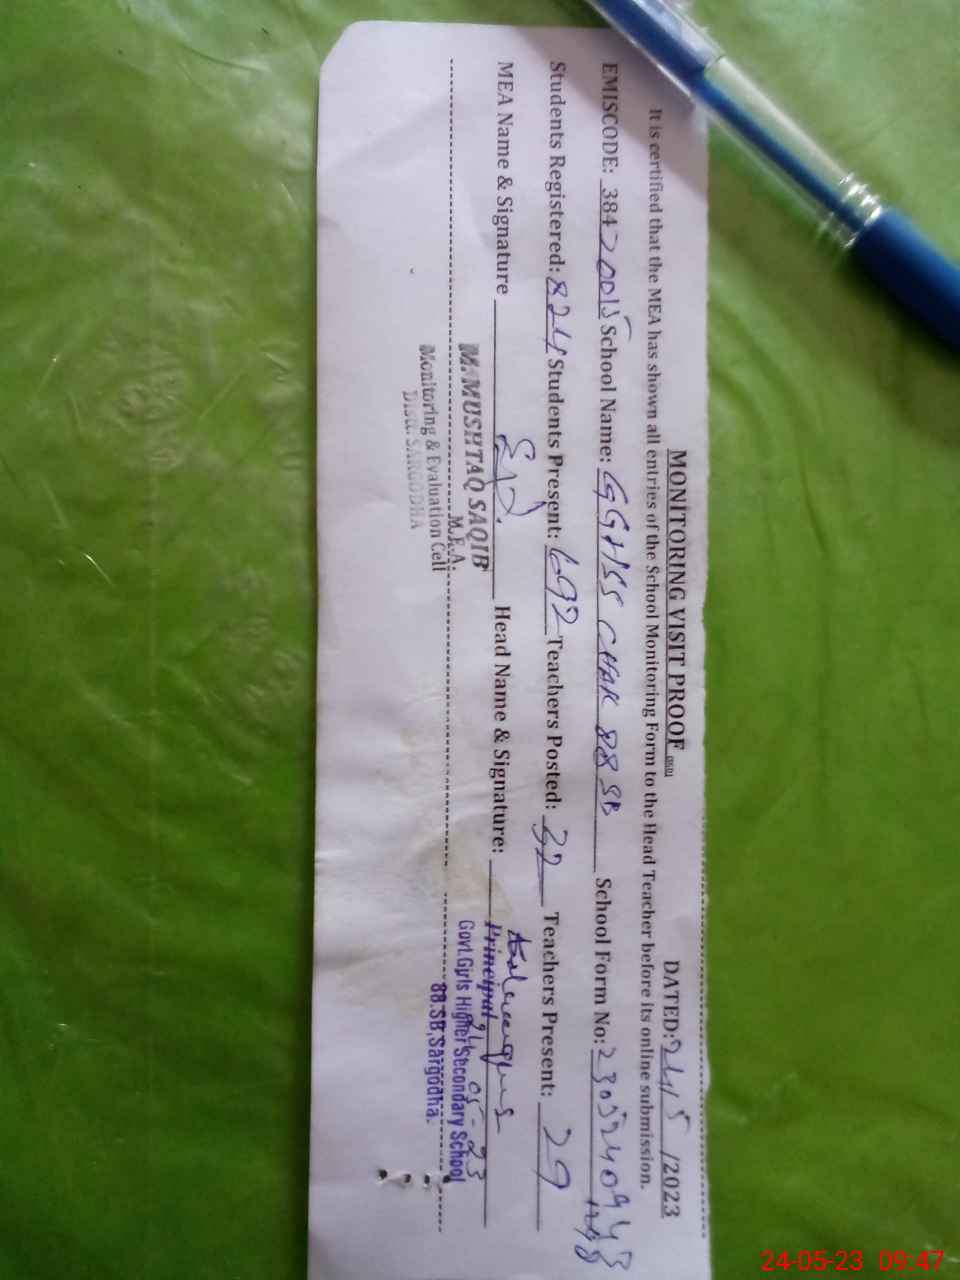 MONITORING VISIT PROOF
DATED: 24/5/2023
It is certified that the MEA has shown all entries of the School Monitoring Form to the Head Teacher before its online submission.
EMISCODE: 38420015 School Name: GGHSS CHAK 88 SB School Form No: 2305240943
Students Registered: 824 Students Present: 692 Teachers Posted: 32 Teachers Present: 29
MEA Name & Signature Head Name & Signature:
M. MUSHTAQ SAQIB
M.E.A.
Monitoring & Evaluation Cell
Distt. SARGODHA
Principal
Govt. Girls Higher Secondary School
88.SB, Sargodha.
24-05-23
24-05-23 09:47